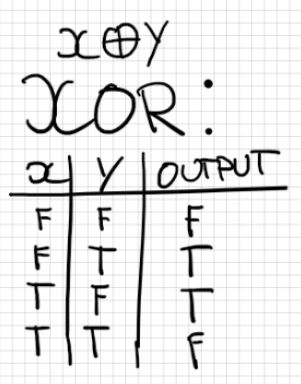 x⊕y
XOR:
x y OUTPUT
F F F
F T T
T F T
T T F